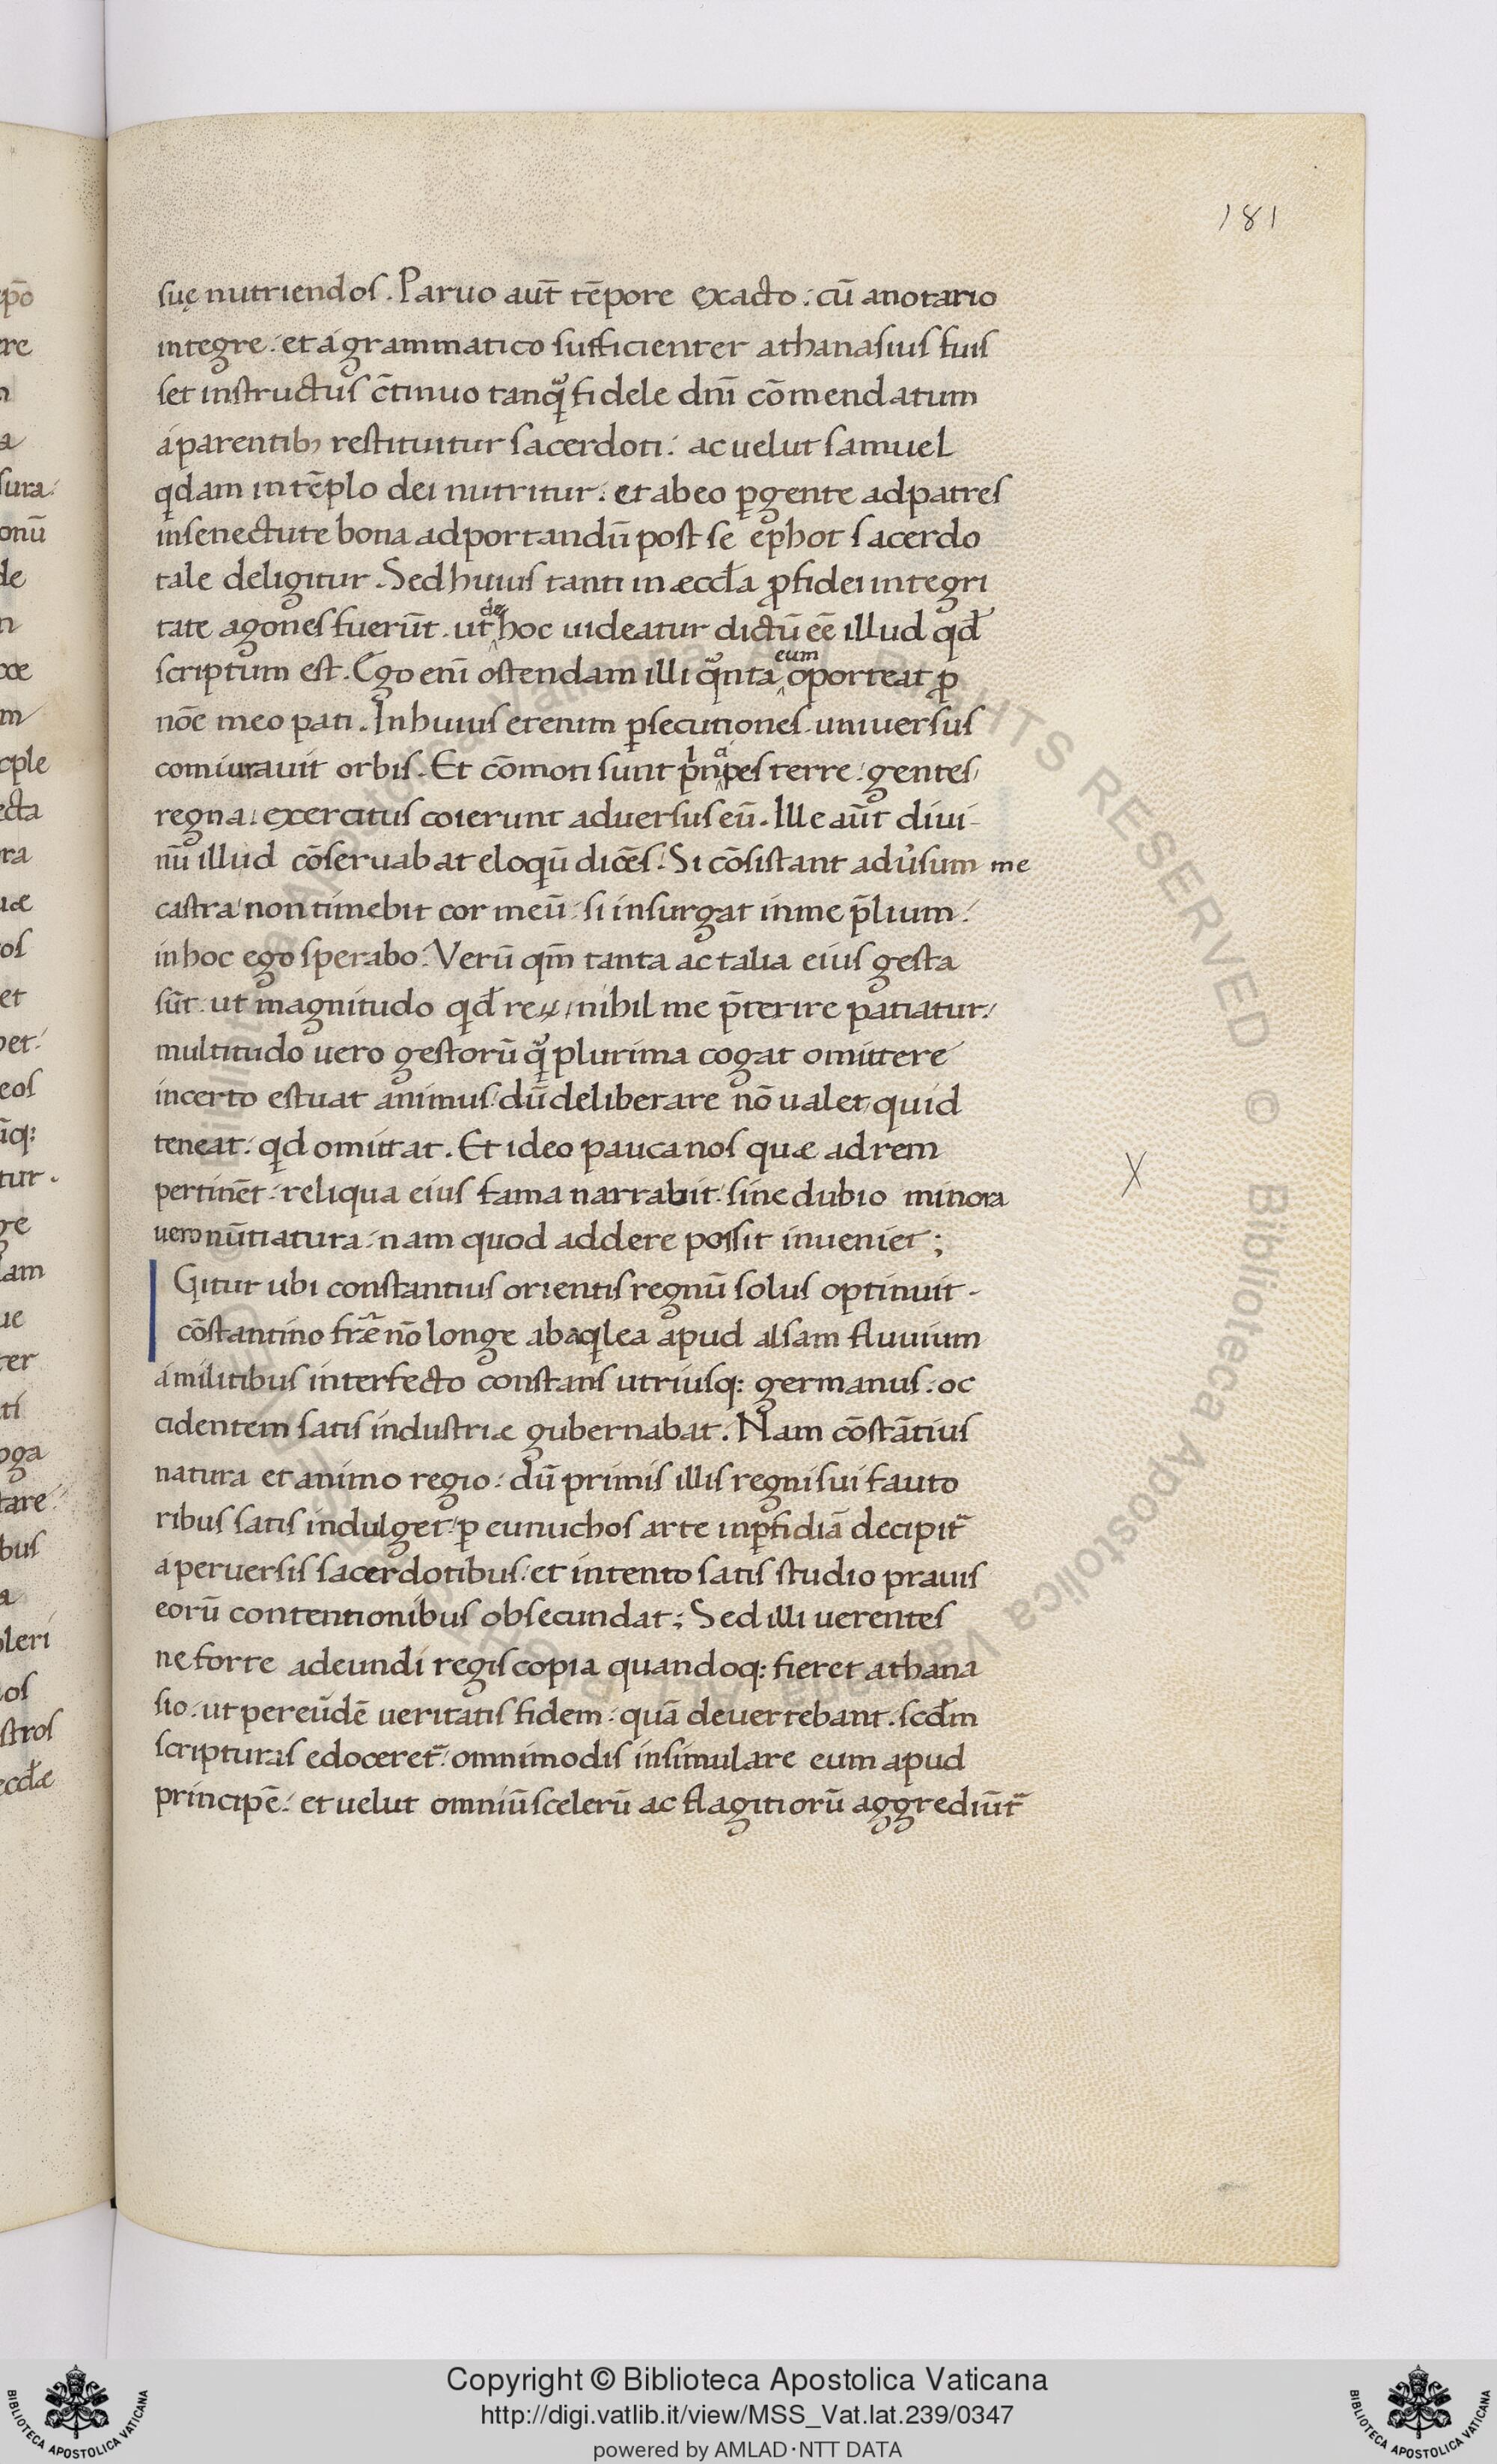 181
suę nutriendos. Paruo aut̄ tēpore exacto: cū anotario
integre: et á grammatico sufficienter athanasius fuis
set instructus c̄tinuo tanqͣ fidele dn̄i cōmendatum
áparentibꝫ restituitur sacerdoti: ac uelut samuel
qdam in tēplo dei nutritur: et abeo ꝑgente adpatres
insenectute bona adportandū post se ephot sacerdo
tale deligitur. Sed huius tanti in æccl̄a ꝓ fidei integri
tate agones fuerūt. ut de hoc uideatur dictū eē illud qd̄
scriptum est. Ego eni̅ ostendam illi qͣnta eum oporteat ꝓ
nōe meo pati. In huius etenim ꝑsecutiones uniuersus
coniurauit orbis. Et cōmoti sunt pͥnͨipes terre: gentes
regna: exercitus coierunt aduersus eū. Ille aūt diui-
nū illud cōseruabat eloqū dicēs: Si cōsistant adu̓sum me
castra: non timebit cor meū: si insurgat inme p̄lium:
inhoc ego sperabo: Verū qm̄ tanta ac talia eius gesta
sūt. ut magnitudo qd̄ reꝝ: nihil me p̄terire patiatur:
multitudo uero gestorū qͣ plurima cogat omittere
incerto estuat animus: dū deliberare nō ualet: quid
teneat: qd omittat. Et ideo pauca nos quæ adrem
pertinēt: reliqua eius fama narrabit: sine dubio minora
X
uero nūtiatura: nam quod addere possit inueniet;
IGitur ubi constantius orientis regnū solus optinuit.
cōstantino fr̄e nō longe abaqlea apud alsam fluuium
ámilitibus interfecto constans utriusq: germanus: oc
cidentem satis industriæ gubernabat. Nam cōstātius
natura et animo regio: dū primis illis regni sui fauto
ribus satis indulget: ꝑ eunuchos arte inꝑfidiā decipit᷑
áperuersis sacerdotibus: et intento satis studio prauis
eorū contentionibus obsecundat; Sed illi uerentes
ne forte adeundi regis copia quandoq: fieret athana
sio: ut pereūdē ueritatis fidem: quā deuertebant. scd̄m
scripturas edoceret᷑: omnimodis insimulare eum apud
principē: et uelut omniū scelerū ac flagitiorū aggrediūt᷑
Copyright © Biblioteca Apostolica Vaticana
http://digi.vatlib.it/view/MSS_Vat.lat.239/0347
powered by AMLAD·NTT DATA